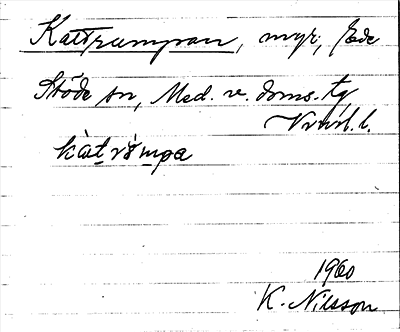 Kattrumpan, myr, Ede
Stöde sn, Med. v. doms. tg
Vrml. l.
kàtrṷ̀mpa
1960
K. Nilsson